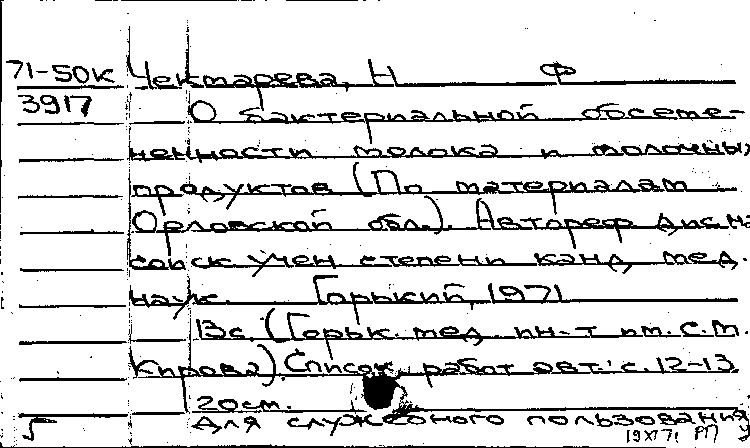 71-50к Чектарева, Н Ф
3917 О бактериальной обсеме-
ненности молока и молочных
продуктов (По материалам
Орловской обл.). Автореф дис на
соиск учен. степени канд. мед.
наук. Горький, 1971
13с. (Горьк. мед. ин-т им. С.М.
Кирова). Список работ авт.: с. 12-13
20см.
5 Для служебного пользования
19 XI 71 РП У